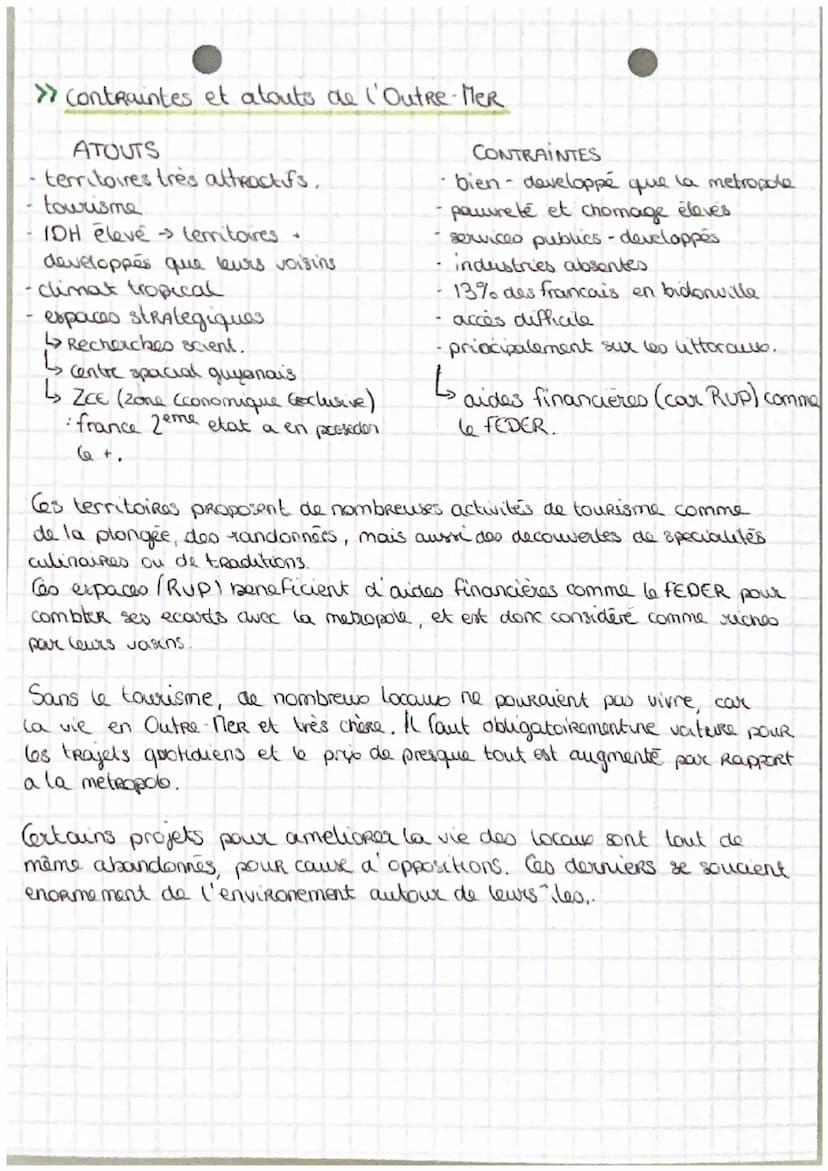 >> Contraintes et atouts de l'Outre-Mer
ATOUTS
- territoires très attractifs.
- tourisme
- IDH élevé → territoires +
développés que leurs voisins
- climat tropical
- espaces stratégiques
↳ Recherches scient.
↳ centre spacial guyanais
↳ ZEE (zone Economique Exclusive)
: france 2eme etat a en posseder
le +.
CONTRAINTES
- bien - developpé que la metropole
- pauvreté et chomage élevés
- services publics - developpés
- industries absentes
- 13% des francais en bidonville
- accès difficile
- principalement sur les littoraux.
↳ aides financières (car RUP) comme
le FEDER.
Ces territoires proposent de nombreuses activités de tourisme comme
de la plongée, des randonnées, mais aussi des decouvertes de specialités
culinaires ou de traditions.
Ces espaces (RUP) beneficient d'aides financières comme le FEDER pour
combler ses ecarts avec la metropole, et est donc considéré comme riches
par leurs voisins.
Sans le tourisme, de nombreux locaux ne pouraient pas vivre, car
la vie en Outre-Mer et très chère. Il faut obligatoirement une voiture pour
les trajets quotidiens et le prix de presque tout est augmenté par rapport
a la metropole.
Certains projets pour ameliorer la vie des locaux sont tout de
même abandonnés, pour cause d'oppositions. Ces derniers se soucient
enormement de l'environement autour de leurs îles.